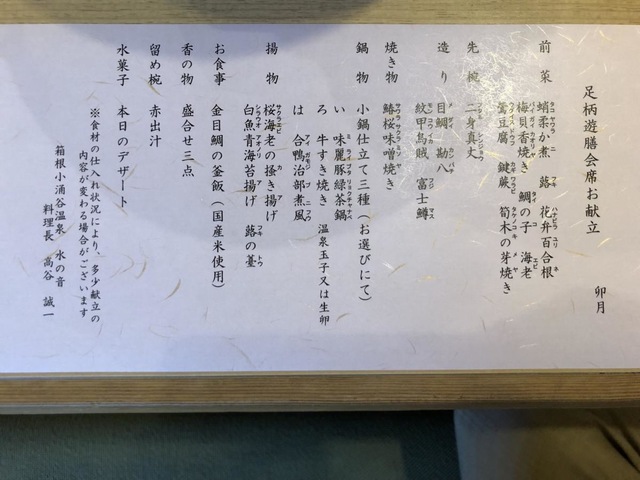 足柄遊膳会席お献立
卯月
前菜 蛸柔か煮 蕗 花弁百合根
梅貝香焼き 鯛の子 海老
鶯豆腐 鍵蕨 筍木の芽焼き
先椀 二身真丈
造り 目鯛 勘八
紋甲烏賊 富士鱒
焼き物 鰆桜味噌焼き
鍋物 小鍋仕立て三種(お選びにて)
い 味麗豚緑茶鍋
ろ 牛すき焼き 温泉玉子又は生卵
は 合鴨治部煮風
揚物 桜海老の掻き揚げ
白魚青海苔揚げ 蕗の薹
お食事 金目鯛の釜飯(国産米使用)
香の物 盛合せ三点
留め椀 赤出汁
水菓子 本日のデザート
※食材の仕入れ状況により、多少献立の
内容が変わる場合がございます
箱根小涌谷温泉 水の音
料理長 高谷 誠一